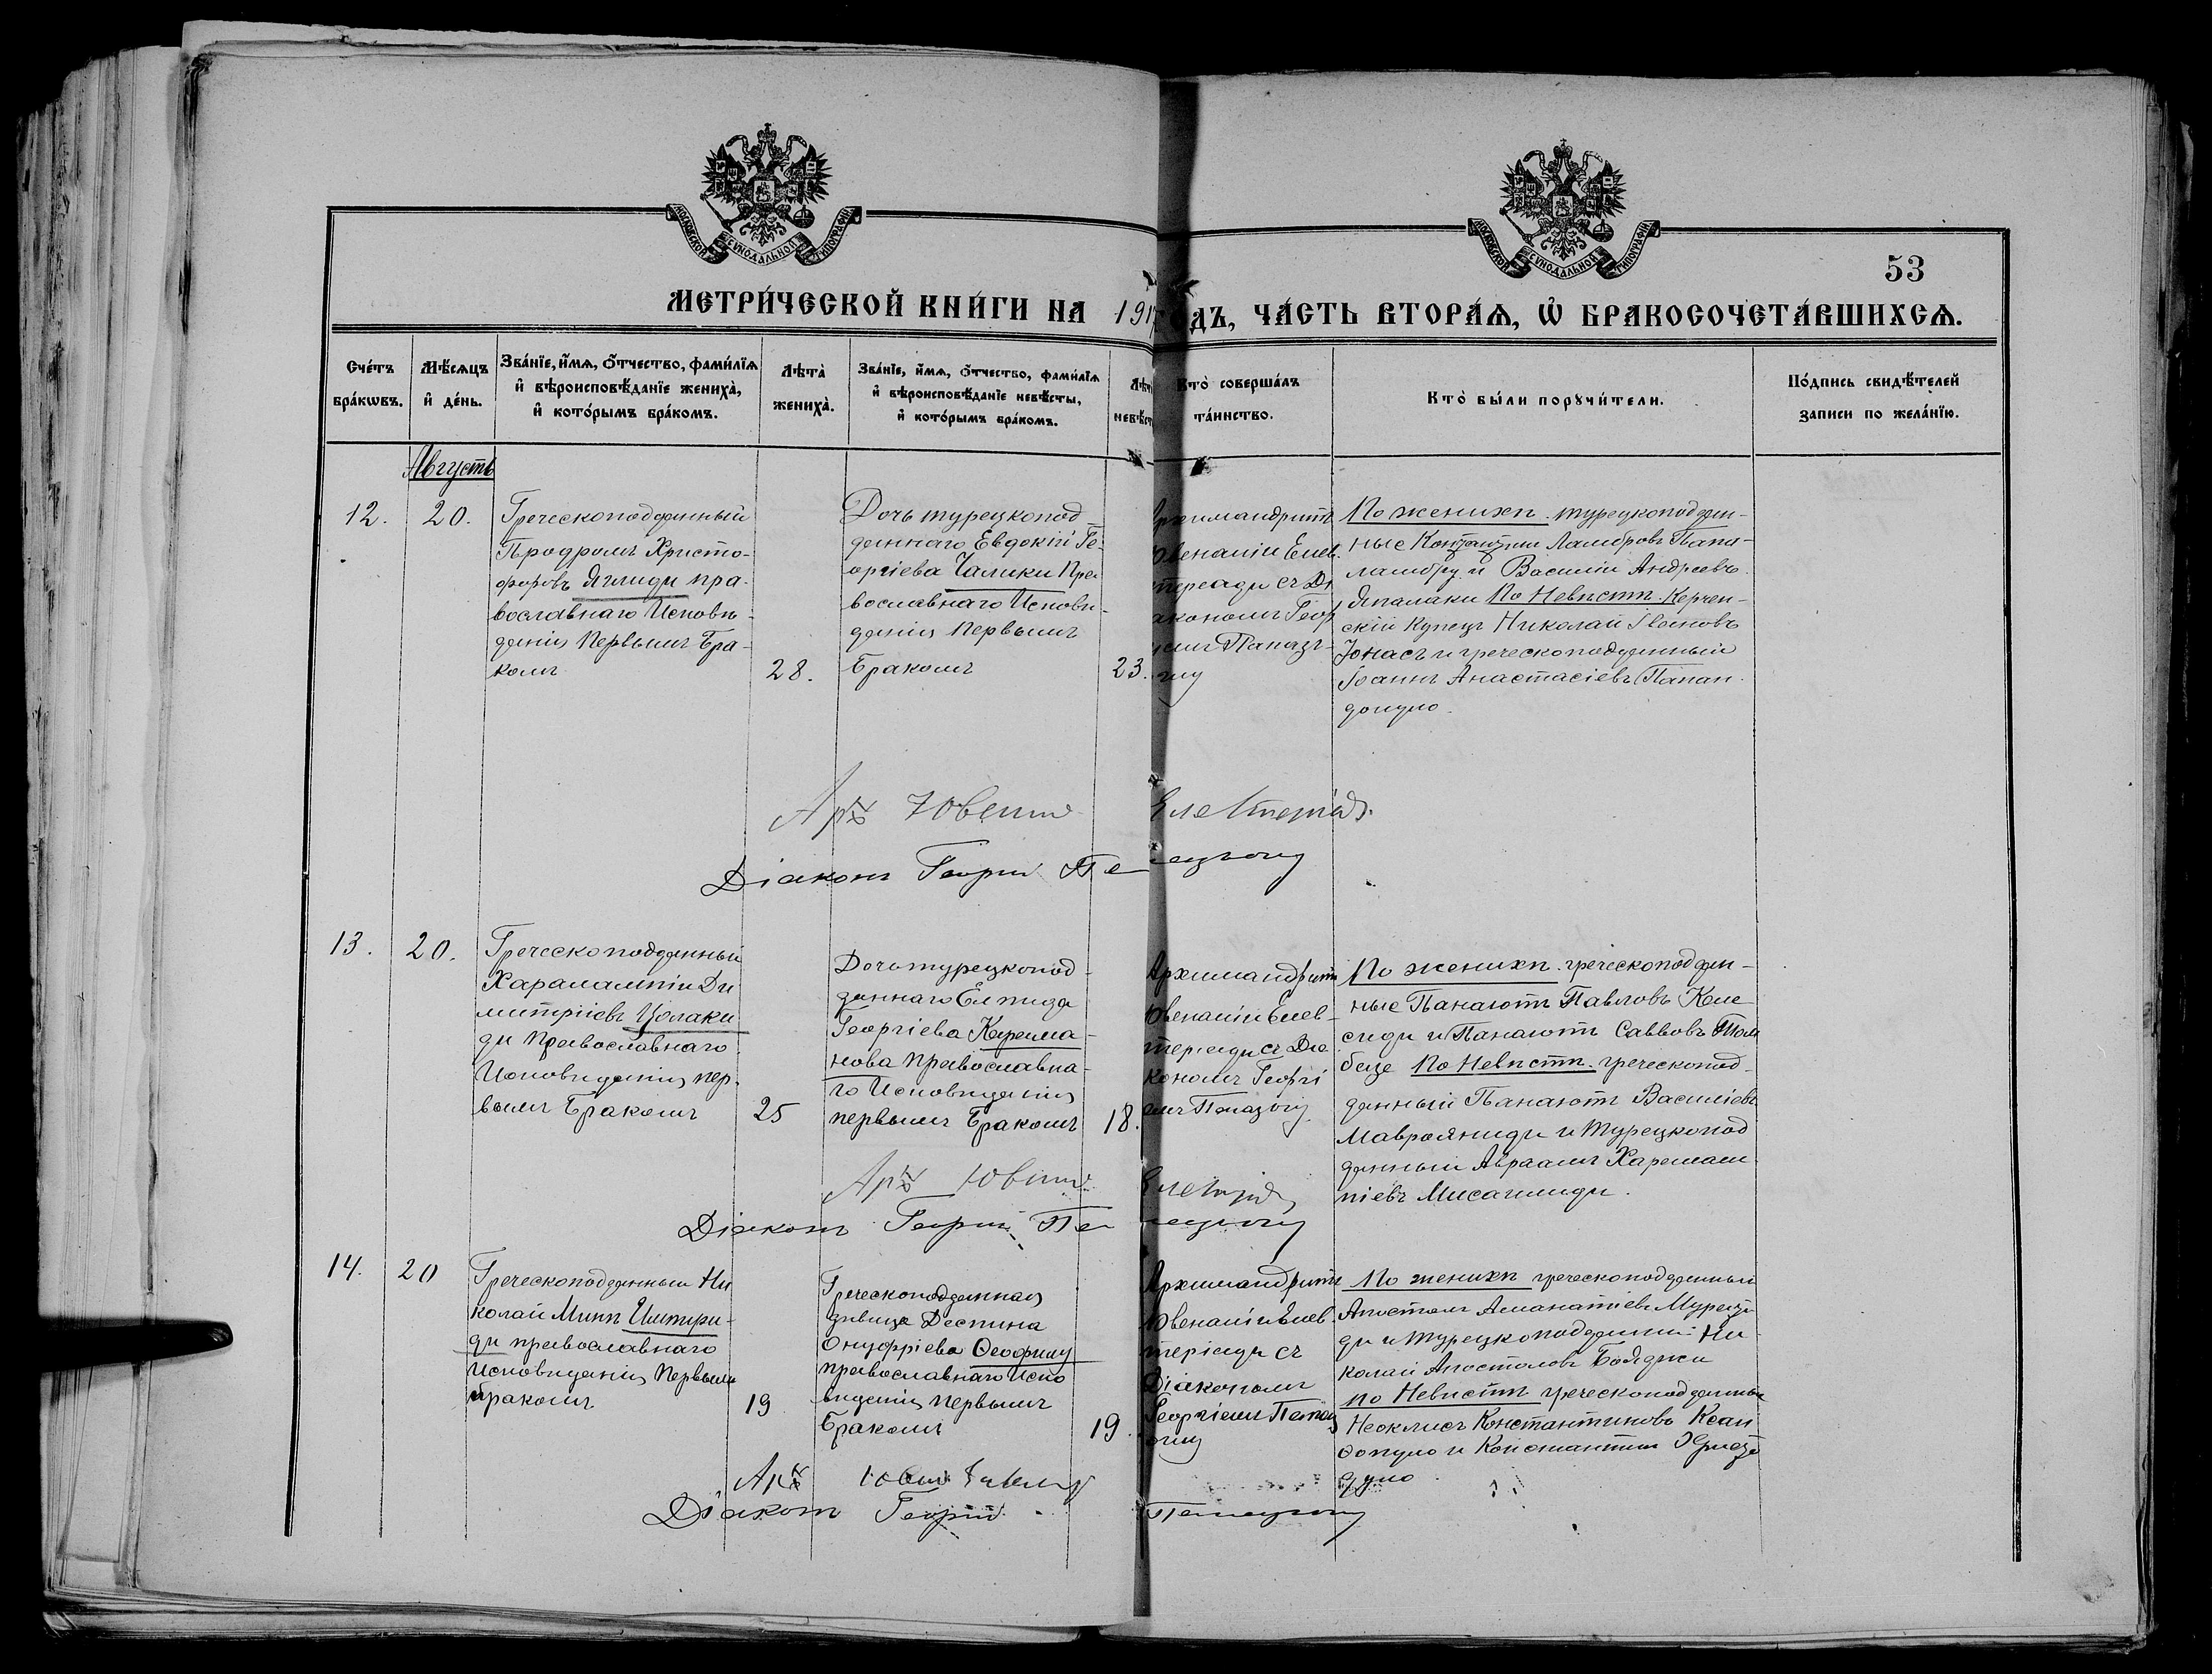 МОСКОВСКОЙ СѴНОДАЛЬНОЙ ТИПОГРАФІИ
МОСКОВСКОЙ СѴНОДАЛЬНОЙ ТИПОГРАФІИ
53
МЕТРИ́ЧЕСКОЙ КНИ́ГИ НА 191 ДЪ, ЧА́СТЬ ВТОРА́Ѧ, Ѽ БРАКОСОЧЕТА́ВШИХСѦ.
Сче́тъ бра́кѡвъ.
Мѣ́сѧцъ и҆ де́нь.
Зва́нїе, и҆́мѧ, ѻ҆́тчество, фами́лїѧ
и҆ вѣроисповѣ́данїе жениха̀,
и҆ кото́рымъ бра́комъ.
Лѣта̀ жениха̀.
Зва́нїе, и҆́мѧ, ѻ҆́тчество, фами́лїѧ
и҆ вѣроисповѣ́данїе невѣ́сты,
и҆ кото́рымъ бра́комъ.
Лѣт
невѣст
Кто̀ соверша́лъ
та́инство.
Кто̀ бы́ли порꙋчи́тели.
По́дпись свидѣ́телей
записи по жела́нїю.
Августъ
12.
20.
Греческоподданный
Продромъ Христо-
форовъ Яглиди пра-
вославнаго Исповѣ-
данія Первымъ Бра-
комъ
28.
Дочь турецкопод
даннаго Евдокія Ге-
оргіева Чалики Пра
вославнаго Исповѣ-
данія Первымъ
Бракомъ
23.
Архимандритъ
Ювеналій Елев-
теріади съ Ді
акономъ Геор
гіемъ
По женихѣ. турецкоподдан-
ные Константинъ Ламбровъ Папа-
ламбру и Василій Андреевъ
Япалаки По Невѣстѣ. Керчен-
скій Купецъ Николай Івановъ
Іонасъ и греческоподданный
Іоаннъ Анастасіевъ Папан
допуло.
Арх Ювенал Елевтеріад.
Діаконъ Георгій
13.
20.
Греческоподданный
Харалампій Ди
митріевъ Цолаки
ди Православнаго
Исповѣданія пер-
вымъ Бракомъ
25
Дочь турецкопод-
даннаго Елпида
Георгіева Карама-
нова Православна-
го Исповѣданія
первымъ Бракомъ
18.
Архимандритъ
Ювеналій Елев-
теріади съ Діа
кономъ Георгі
емъ
По женихѣ. греческоподдан-
ные Панаіотъ Павловъ Келе
сиди и Панаіотъ Саввовъ
По Невѣстѣ. греческопод-
данный Панаіотъ Василіевъ
Маврояниди и Турецкопод
данный Авраамъ Харалам
піевъ Мисаилиди.
Арх Ювенал
Діаконъ Георгій
14.
20
Греческоподданный Ни
колай Минъ
ди православнаго
Исповѣданія Первымъ
бракомъ
19
Греческоподданная
дѣвица Деспина
Онуфріева Ѳеофилу
православнаго Испо
вѣданія первымъ
Бракомъ
19.
Архимандритъ
Ювеналій Елев
теріади съ
Діакономъ
Георгіемъ
По женихѣ греческоподданный
Апостолъ
ди и Турецкоподданный Ни
колай Апостоловъ Бояджи
по Невѣстѣ греческоподданные
Неоклисъ Константиновъ Ксан
ѳопуло и Константинъ
Арх
Діаконъ Георгій